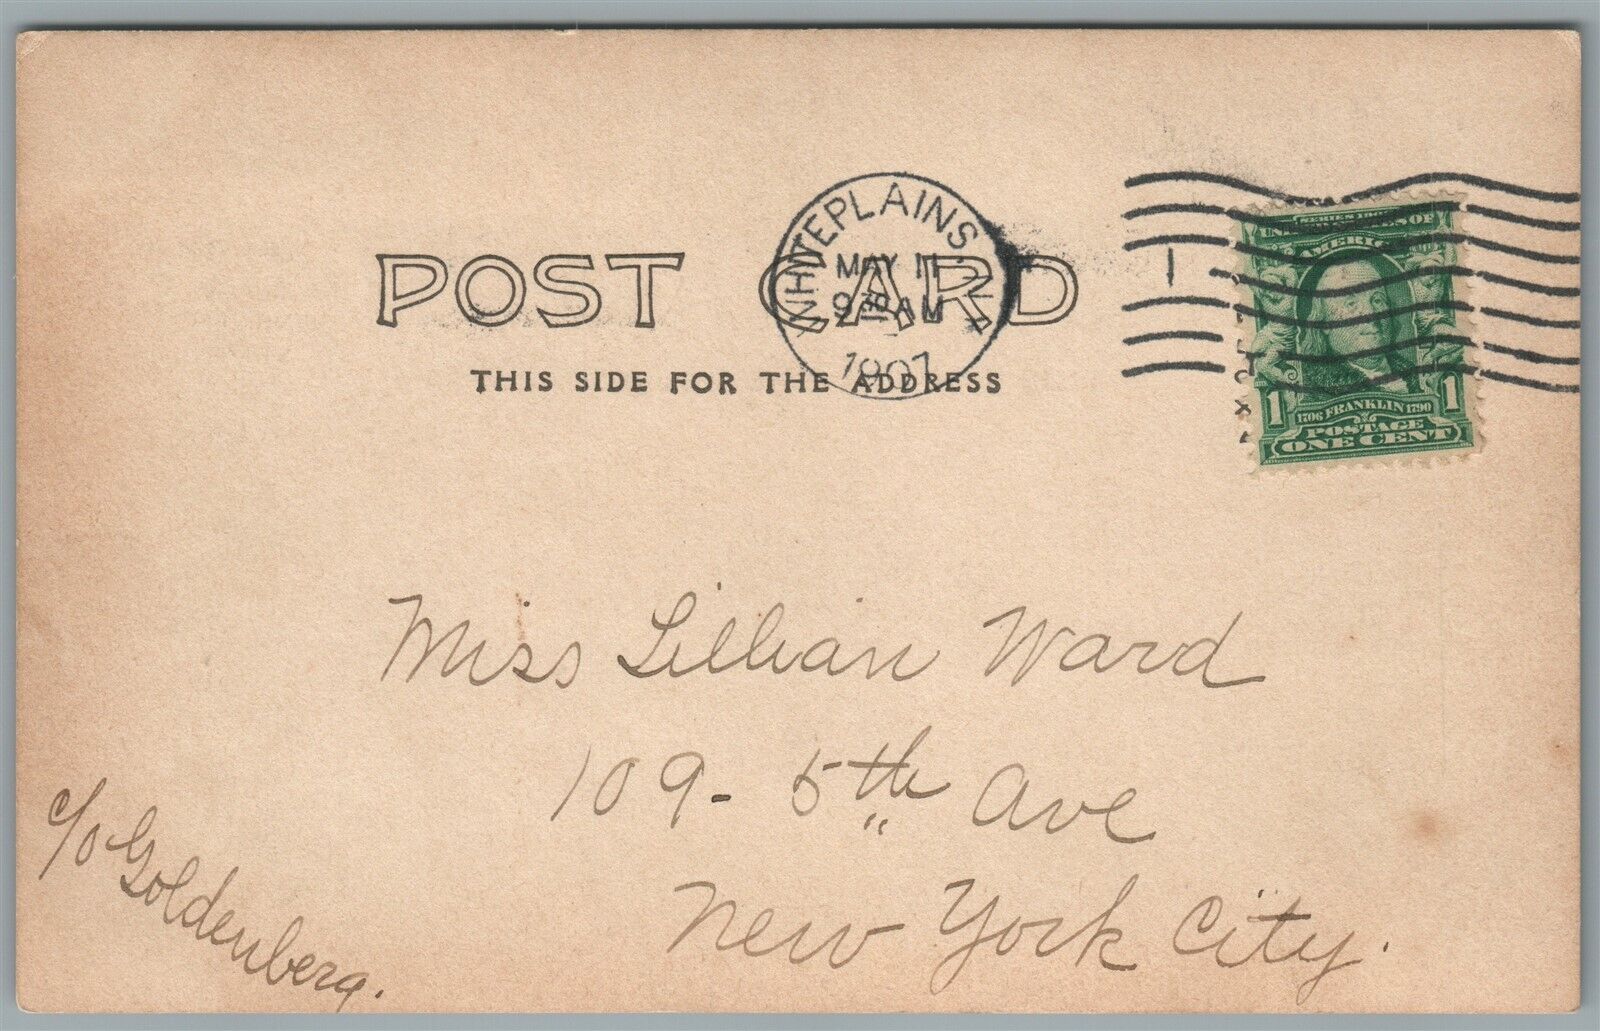 POST CARD
THIS SIDE FOR THE ADDRESS
WHITEPLAINS, N.Y.
MAY 11
9 30 AM
1907
1
SERIES 1902
UNITED STATES OF
AMERICA
1706 FRANKLIN 1790
POSTAGE
1 ONE CENT 1
Miss Lillian Ward
109 - 5th Ave
New York City.
c/o Goldenberg.